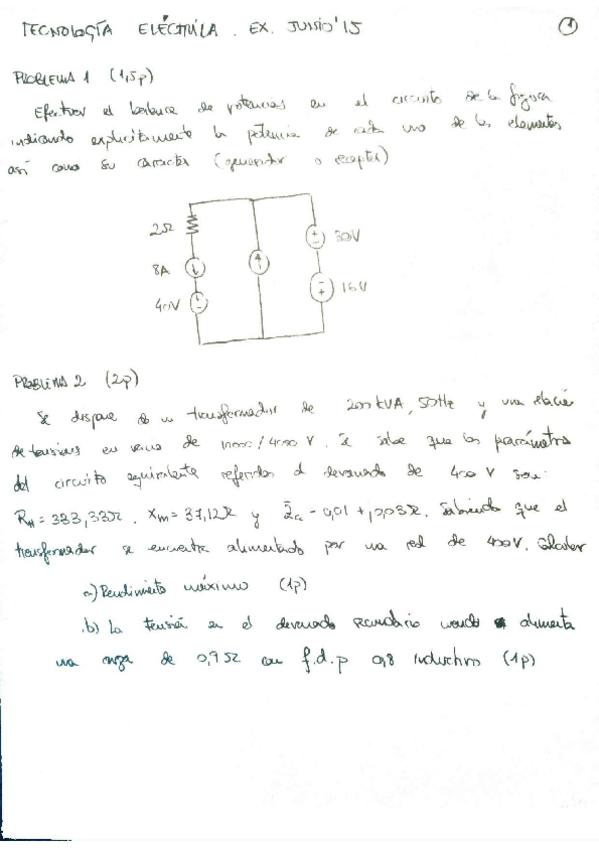 TECNOLOGÍA ELÉCTRICA. EX. JUNIO'15
1
PROBLEMA 1 (1,5p)
Efectuar el balance de potencias en el circuito de la figura
indicando explícitamente la potencia de cada uno de los elementos
así como su carácter (generador o receptor)
2Ω
8A
40V
30V
16V
PROBLEMA 2 (2p)
Se dispone de un transformador de 200 kVA, 50Hz y una relación
de tensiones en vacío de /400 V. Se sabe que los parámetros
del circuito equivalente referidos al devanado de 400 V son:
R = 333,33Ω, Xm = 37,12Ω y = 0,01 + j0,03Ω. Sabiendo que el
transformador se encuentra alimentado por una red de 400V. Calcular
a) Rendimiento máximo (1p)
b) La tensión en el devanado secundario cuando alimenta
una carga de 0,9Ω con f.d.p 0,8 inductivo (1p)